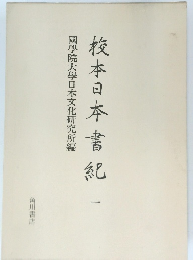 校本日本書紀 一
國學院大學日本文化研究所編
角川書店